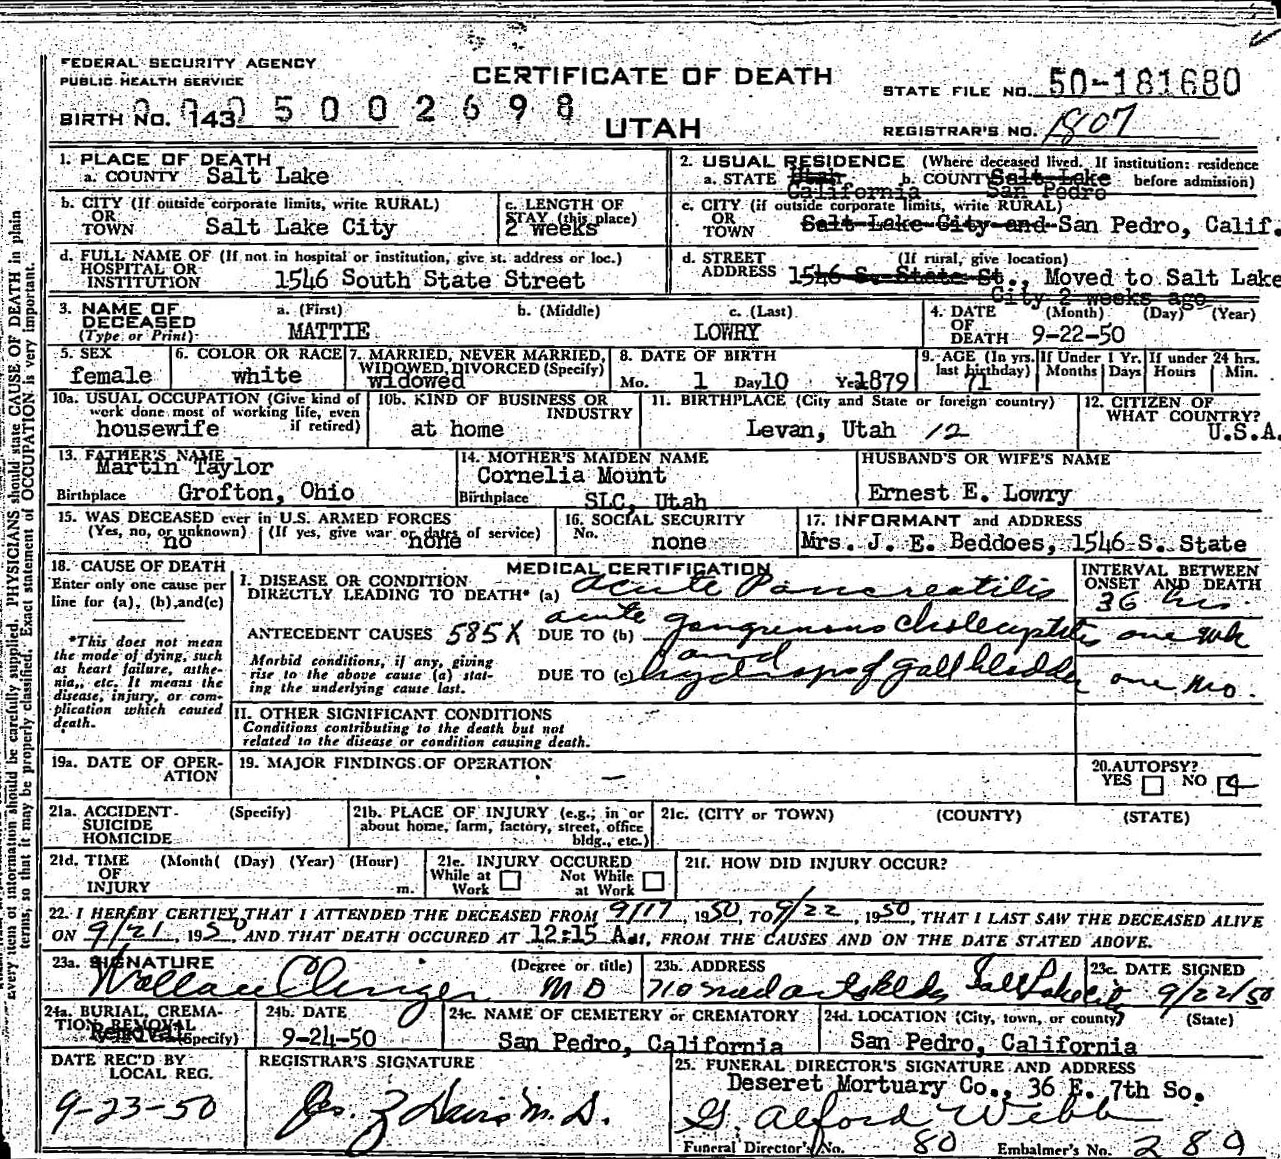 FEDERAL SECURITY AGENCY
PUBLIC HEALTH SERVICE
CERTIFICATE OF DEATH
UTAH
STATE FILE NO. 50-181680
BIRTH NO. 143 0005002698
REGISTRAR'S NO. 1807
1. PLACE OF DEATH
a. COUNTY Salt Lake
2. USUAL RESIDENCE (Where deceased lived. If institution: residence before admission)
a. STATE Utah California b. COUNTY Salt Lake San Pedro
b. CITY (If outside corporate limits, write RURAL) OR TOWN Salt Lake City
c. LENGTH OF STAY (this place) 2 weeks
c. CITY (if outside corporate limits, write RURAL) OR TOWN Salt Lake City and San Pedro, Calif.
d. FULL NAME OF (If not in hospital or institution, give st. address or loc.) HOSPITAL OR INSTITUTION 1546 South State Street
d. STREET ADDRESS (If rural, give location) 1546 S. State St., Moved to Salt Lake City 2 weeks ago
3. NAME OF DECEASED (Type or Print) a. (First) MATTIE b. (Middle) c. (Last) LOWRY
4. DATE OF DEATH (Month) (Day) (Year) 9-22-50
5. SEX female
6. COLOR OR RACE white
7. MARRIED, NEVER MARRIED, WIDOWED, DIVORCED (Specify) widowed
8. DATE OF BIRTH Mo. 1 Day 10 Year 1879
9. AGE (In yrs. last birthday) 71
If Under 1 Yr. Months Days
If under 24 hrs. Hours Min.
10a. USUAL OCCUPATION (Give kind of work done most of working life, even if retired) housewife
10b. KIND OF BUSINESS OR INDUSTRY at home
11. BIRTHPLACE (City and State or foreign country) Levan, Utah 12
12. CITIZEN OF WHAT COUNTRY? U.S.A.
13. FATHER'S NAME Martin Taylor
Birthplace Grofton, Ohio
14. MOTHER'S MAIDEN NAME Cornelia Mount
Birthplace SLC, Utah
HUSBAND'S OR WIFE'S NAME
Ernest E. Lowry
15. WAS DECEASED ever in U.S. ARMED FORCES
(Yes, no, or unknown) no (If yes, give war or dates of service) none
16. SOCIAL SECURITY No. none
17. INFORMANT and ADDRESS
Mrs. J. E. Beddoes, 1546 S. State
18. CAUSE OF DEATH
Enter only one cause per line for (a), (b), and (c)
*This does not mean the mode of dying, such as heart failure, asthenia,, etc. It means the disease, injury, or complication which caused death.
MEDICAL CERTIFICATION
INTERVAL BETWEEN ONSET AND DEATH
I. DISEASE OR CONDITION DIRECTLY LEADING TO DEATH* (a) Acute Pancreatitis 36 hrs.
ANTECEDENT CAUSES 585X DUE TO (b) acute gangrenous cholecystitis one wk
and
Morbid conditions, if any, giving rise to the above cause (a) stating the underlying cause last.
DUE TO (c) hydrops of gall bladder one mo.
II. OTHER SIGNIFICANT CONDITIONS
Conditions contributing to the death but not related to the disease or condition causing death.
19a. DATE OF OPERATION
19. MAJOR FINDINGS OF OPERATION —
20. AUTOPSY? YES NO
21a. ACCIDENT SUICIDE HOMICIDE (Specify)
21b. PLACE OF INJURY (e.g., in or about home, farm, factory, street, office bldg., etc.)
21c. (CITY OR TOWN) (COUNTY) (STATE)
21d. TIME OF INJURY (Month( (Day) (Year) (Hour) m.
21e. INJURY OCCURED While at Work Not While at Work
21f. HOW DID INJURY OCCUR?
22. I HEREBY CERTIFY THAT I ATTENDED THE DECEASED FROM 9/17, 1950, TO 9/22, 1950, THAT I LAST SAW THE DECEASED ALIVE
ON 9/21, 1950, AND THAT DEATH OCCURED AT 12:15 A.M., FROM THE CAUSES AND ON THE DATE STATED ABOVE.
23a. SIGNATURE (Degree or title) MD
23b. ADDRESS 710 Med arts Bldg Salt Lake City
23c. DATE SIGNED 9/22/50
24a. BURIAL, CREMATION, REMOVAL (Specify) Removal
24b. DATE 9-24-50
24c. NAME OF CEMETERY or CREMATORY San Pedro, California
24d. LOCATION (City, town, or county) (State) San Pedro, California
DATE REC'D BY LOCAL REG. 9-23-50
REGISTRAR'S SIGNATURE M.D.
25. FUNERAL DIRECTOR'S SIGNATURE AND ADDRESS
Deseret Mortuary Co., 36 E. 7th So.
G. Alford Webb
Funeral Director's No. 80 Embalmer's No. 289
Every item of information should be carefully supplied. PHYSICIANS should state CAUSE OF DEATH in plain
terms, so that it may be properly classified. Exact statement of OCCUPATION is very important.